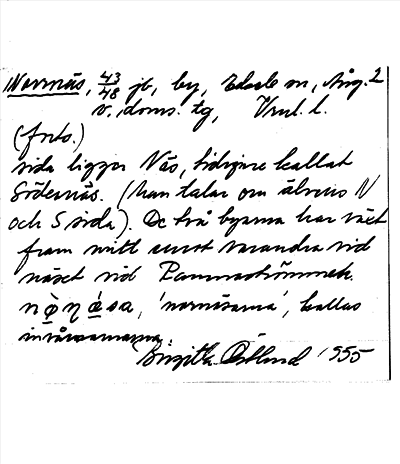 Norrnäs, 43/48 jb, by, Edsele sn, Ång. 2
v. doms. tg, Vnl. l.
(forts.)
sida ligger Näs, tidigare kallat
Södernäs. (Man talar om älvens N
och S sida). De två byarna har växt
fram mitt emot varandra vid
näset vid
'nornäsarna', kallas
invånarna.
Birgitta Östlund 1955